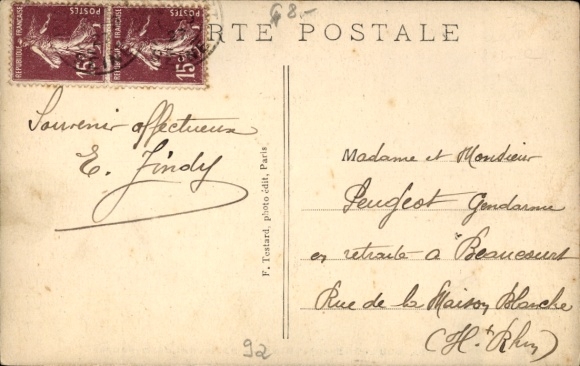 G8.-
CARTE POSTALE
REPUBLIQUE FRANÇAISE POSTES 15c
REPUBLIQUE FRANÇAISE POSTES 15c
Souvenir affectueux
E. Jindy
F. Testard, photo édit, Paris
Madame et Monsieur
Peugeot Gendarme
en retraite à Beaucourt
Rue de la Maison Blanche
(Ht Rhin)
92